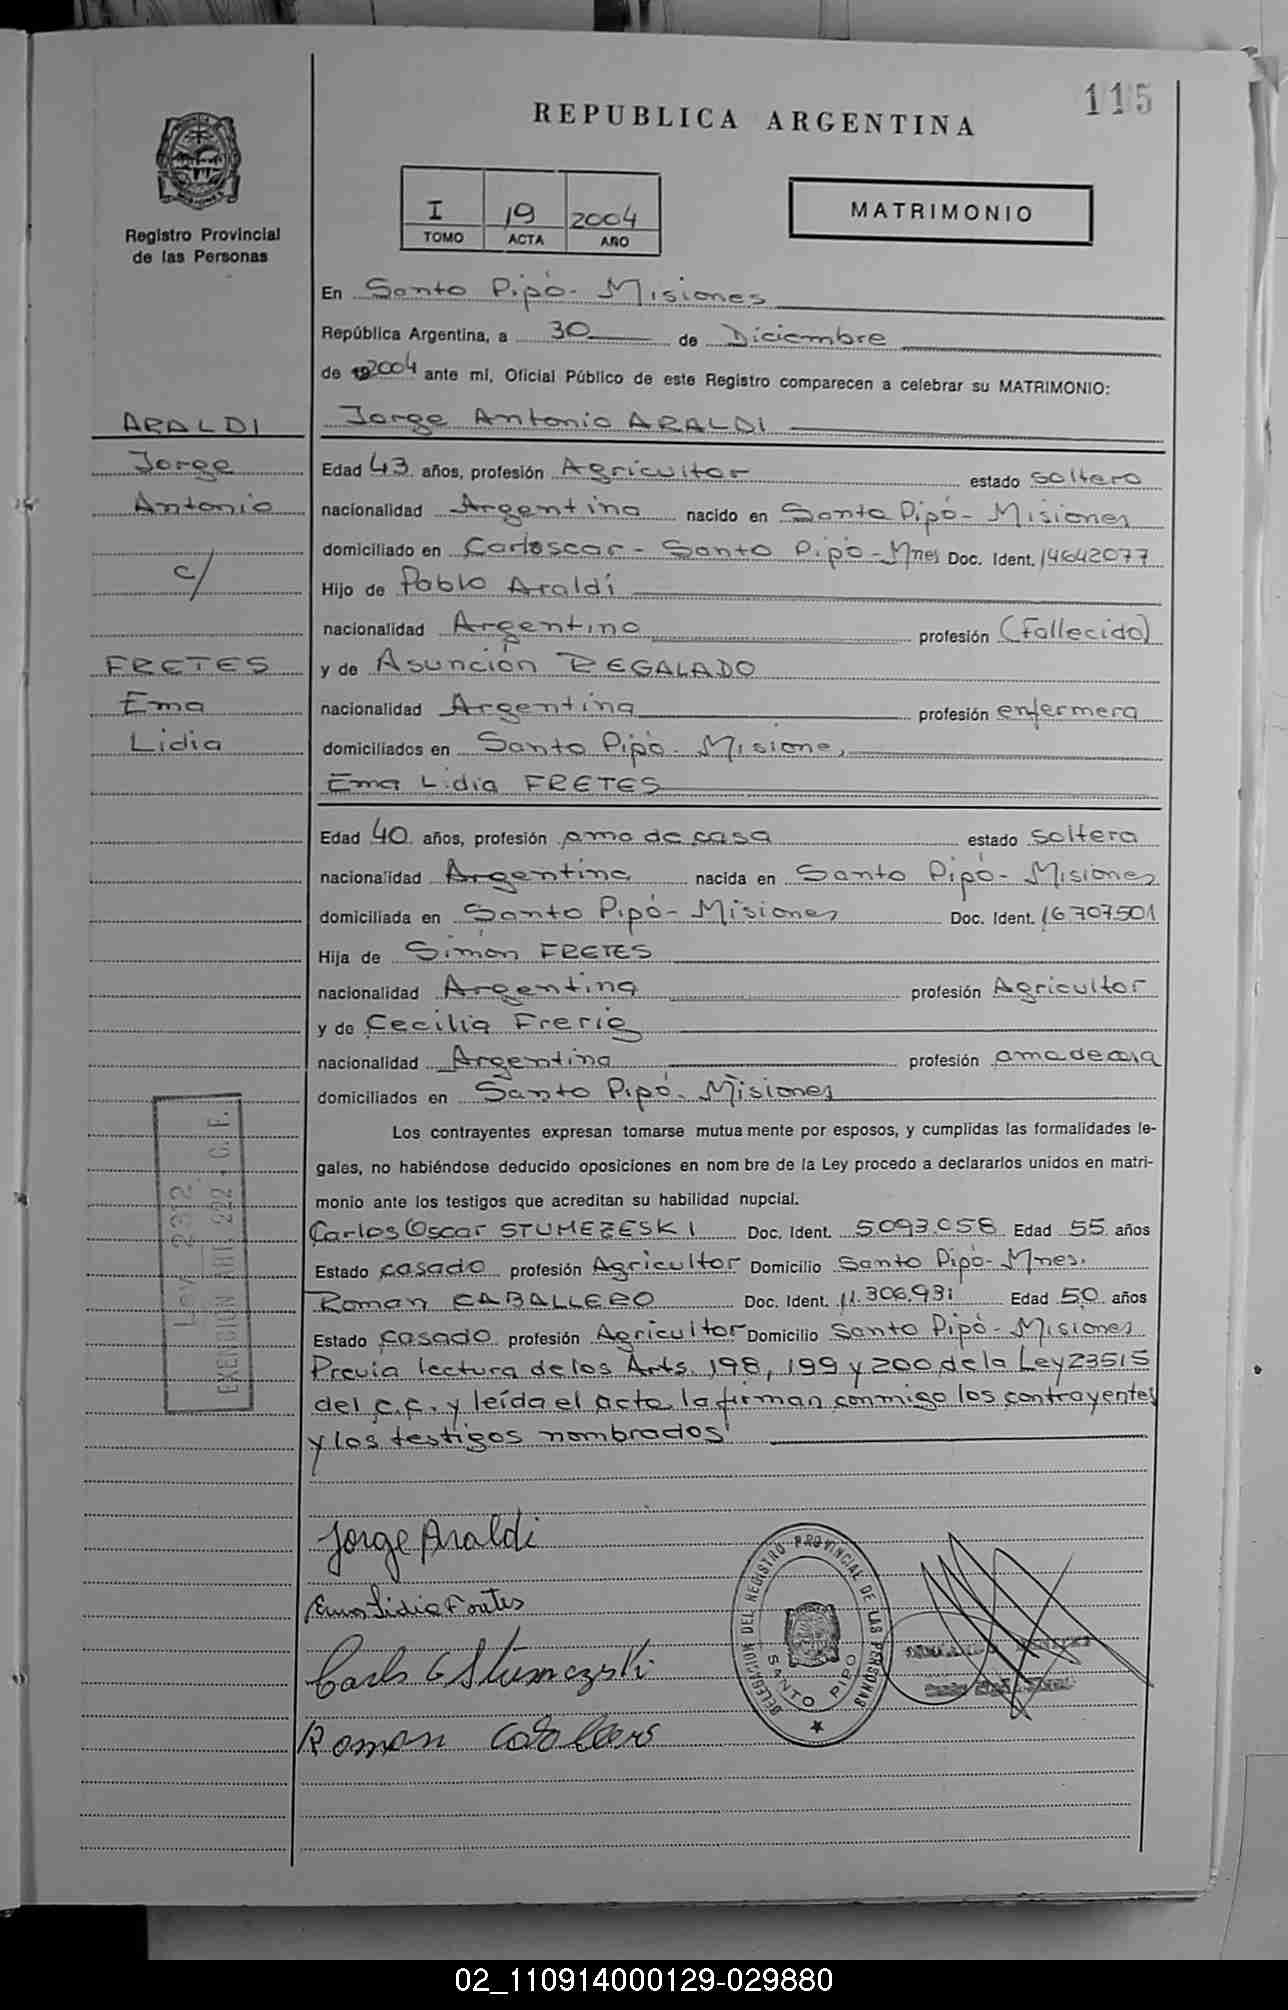 115
REPUBLICA ARGENTINA
Registro Provincial
de las Personas
I 19 2004
TOMO ACTA AÑO
MATRIMONIO
En Santo Pipó - Misiones
República Argentina, a 30 de Diciembre
de 2004 ante mí, Oficial Público de este Registro comparecen a celebrar su MATRIMONIO:
ARALDI
Jorge
Antonio
c/
FRETES
Ema
Lidia
Jorge Antonio ARALDI
Edad 43 años, profesión Agricultor estado soltero
nacionalidad Argentina nacido en Santo Pipó - Misiones
domiciliado en Carloscar - Santo Pipó - Mnes Doc. Ident. 14642077
Hijo de Pablo Araldi
nacionalidad Argentino profesión (Fallecido)
y de Asunción REGALADO
nacionalidad Argentina profesión enfermera
domiciliados en Santo Pipó - Misiones
Ema Lidia FRETES
Edad 40 años, profesión ama de casa estado soltera
nacionalidad Argentina nacida en Santo Pipó - Misiones
domiciliada en Santo Pipó - Misiones Doc. Ident. 16707501
Hija de Simón FRETES
nacionalidad Argentina profesión Agricultor
y de Cecilia Frerig
nacionalidad Argentina profesión ama de casa
domiciliados en Santo Pipó - Misiones
Los contrayentes expresan tomarse mutua mente por esposos, y cumplidas las formalidades le-
gales, no habiéndose deducido oposiciones en nom bre de la Ley procedo a declararlos unidos en matri-
monio ante los testigos que acreditan su habilidad nupcial.
Carlos Oscar STUMEZESKI Doc. Ident. 5.093.058 Edad 55 años
Estado casado profesión Agricultor Domicilio Santo Pipó - Mnes.
Roman CABALLERO Doc. Ident. 11.306.931 Edad 50 años
Estado casado profesión Agricultor Domicilio Santo Pipó - Misiones
Previa lectura de los Arts. 198, 199 y 200 de la Ley 23515
del c.c. y leída el acta, la firman conmigo los contrayentes
y los testigos nombrados
Ley 2312
EXENCION ART. 222 . C. F.
Jorge Araldi
Ema Lidia Fretes
Carlos O Stumezski
Roman Caballero
DELEGACION DEL REGISTRO PROVINCIAL DE LAS PERSONAS
SANTO PIPO
02_110914000129-029880